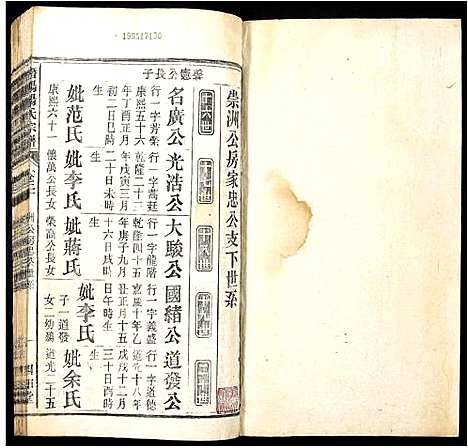 199517130
崇洲公房家忠公支下世系
榮憲公長子
名廣公
行一字芳榮
康熙五十六
年丁酉正月
初二日巳時
生
妣范氏
康熙六十一
光浩公
行一字萬廷
乾隆二十三
年戊寅三月
二十日未時
生
妣李氏
懷萬公長女
大駿公
行一字龍階
乾隆四十五
年庚子九月
十六日戌時
生
妣蔣氏
榮高公長女
國緒公
行一字義盛
嘉慶十年乙
丑正月十五
日午時生
妣李氏
子一道發
女二幼殤
道發公
行一字道德
道光十八年
戊戌十二月
三十日酉時
生
妣余氏
道光二十五
楊氏宗譜